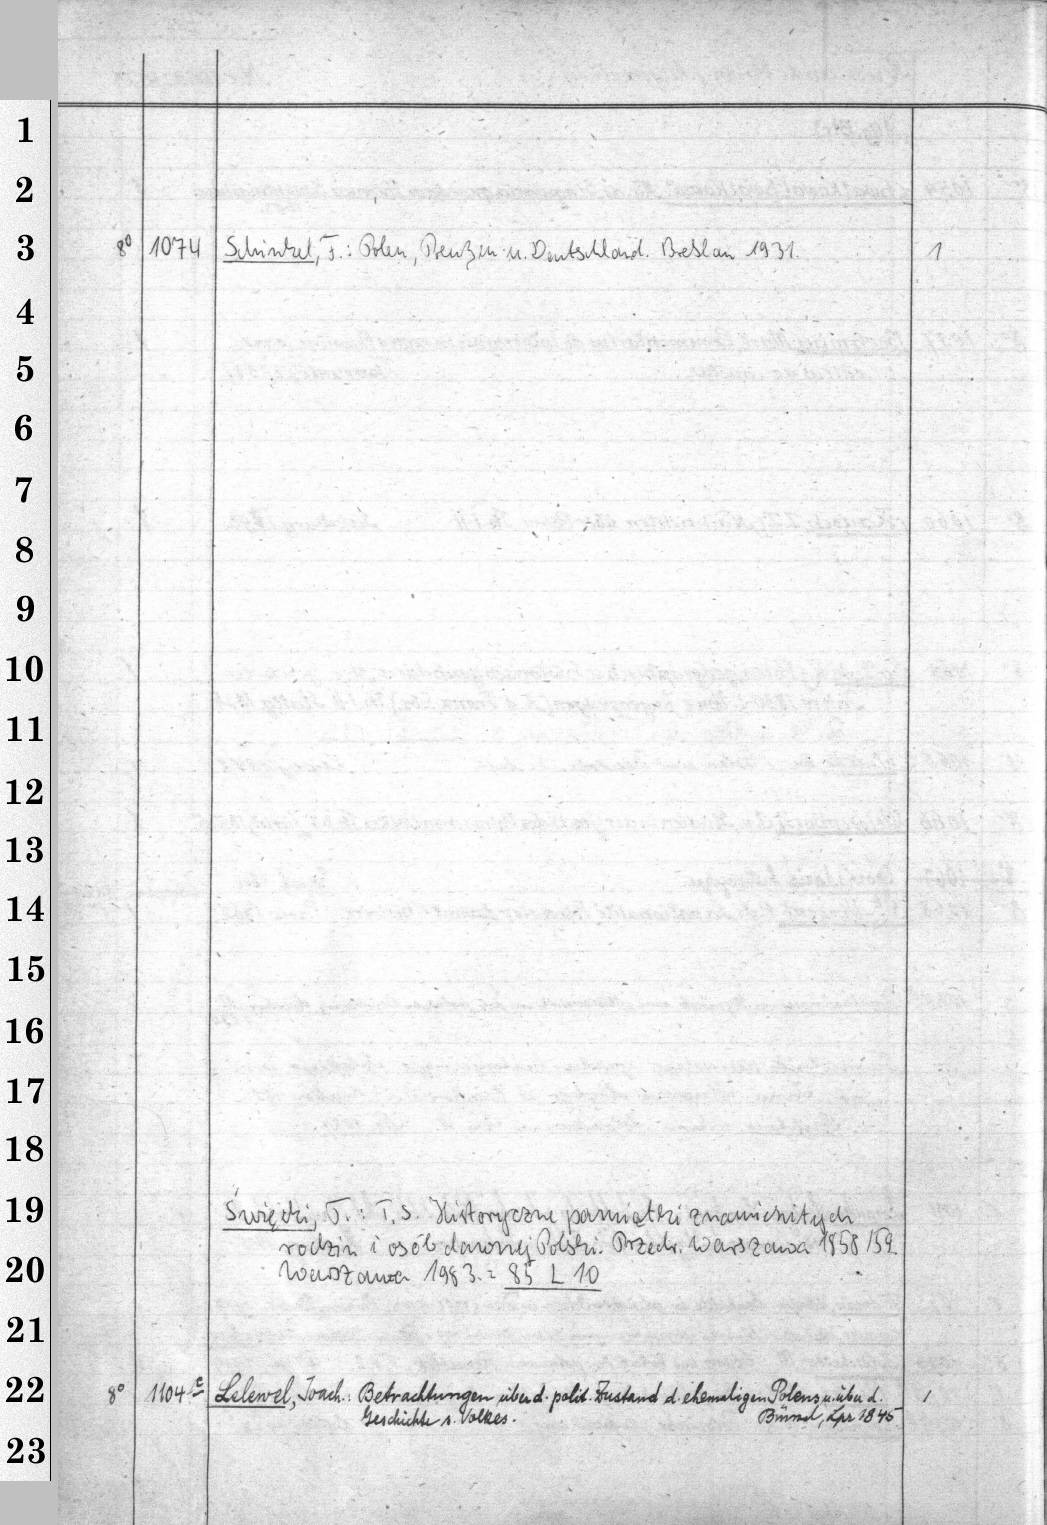 1
2
3
8⁰ 1074 Schinkel, F.: Polen, Preußen u. Deutschland. Breslau 1931. 1
4
5
6
7
8
9
10
11
12
13
14
15
16
17
18
19
Święcki, T.: T.S. Historyczne pamiątki znamienitych
rodzin i osób dawnej Polski. Przedr. Warszawa 1858/59.
20
Warszawa 1983. = 85 L 10
21
22
8⁰ 1104 c Lelewel, Joach.: Betrachtungen über d. polit. Zustand d. ehemaligen Polens u. über d. 1
Geschichte s. Volkes. Brüssel, Lpz 1845
23